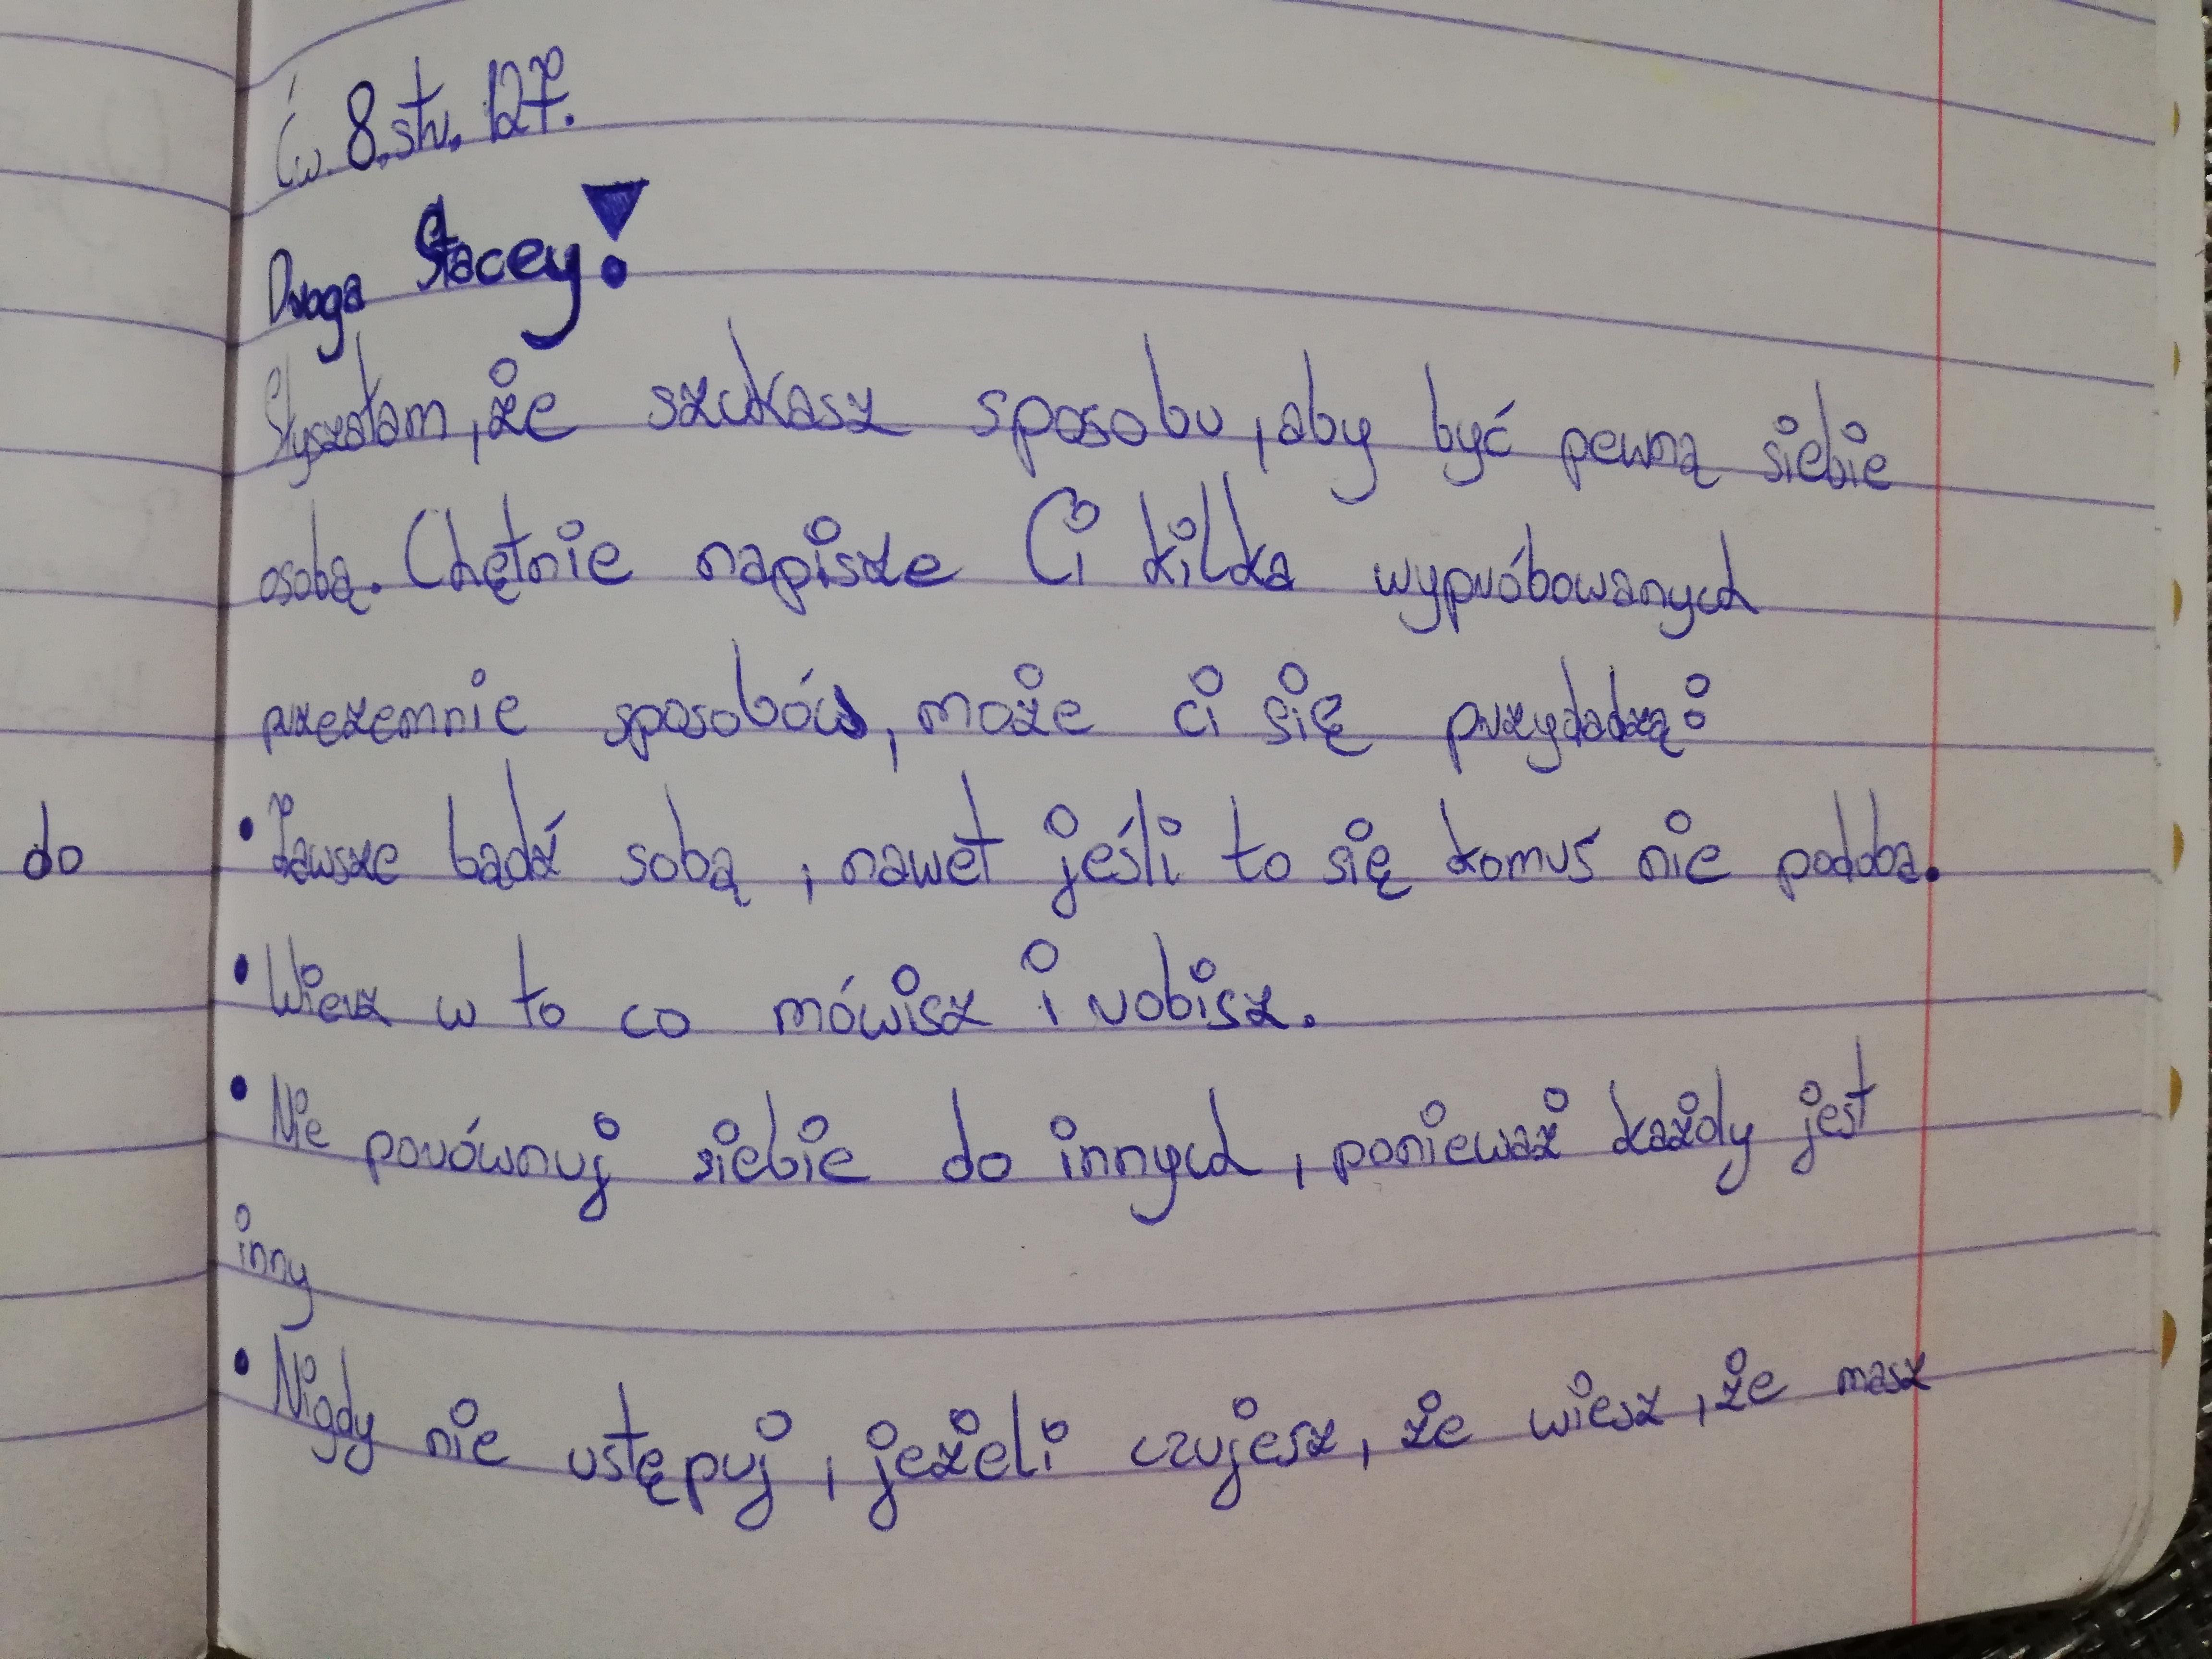 Ćw. 8. str. 127.
Droga Stacey!
Słyszałam, że szukasz sposobu, aby być pewną siebie
osobą. Chętnie napisze Ci kilka wypróbowanych
przezemnie sposobów, może ci się przydadzą:
do
• Zawsze bądź sobą, nawet jeśli to się komuś nie podoba.
• Wierz w to co mówisz i robisz.
• Nie porównuj siebie do innych, ponieważ każdy jest
inny
• Nigdy nie ustępuj, jeżeli czujesz, że wiesz, że masz